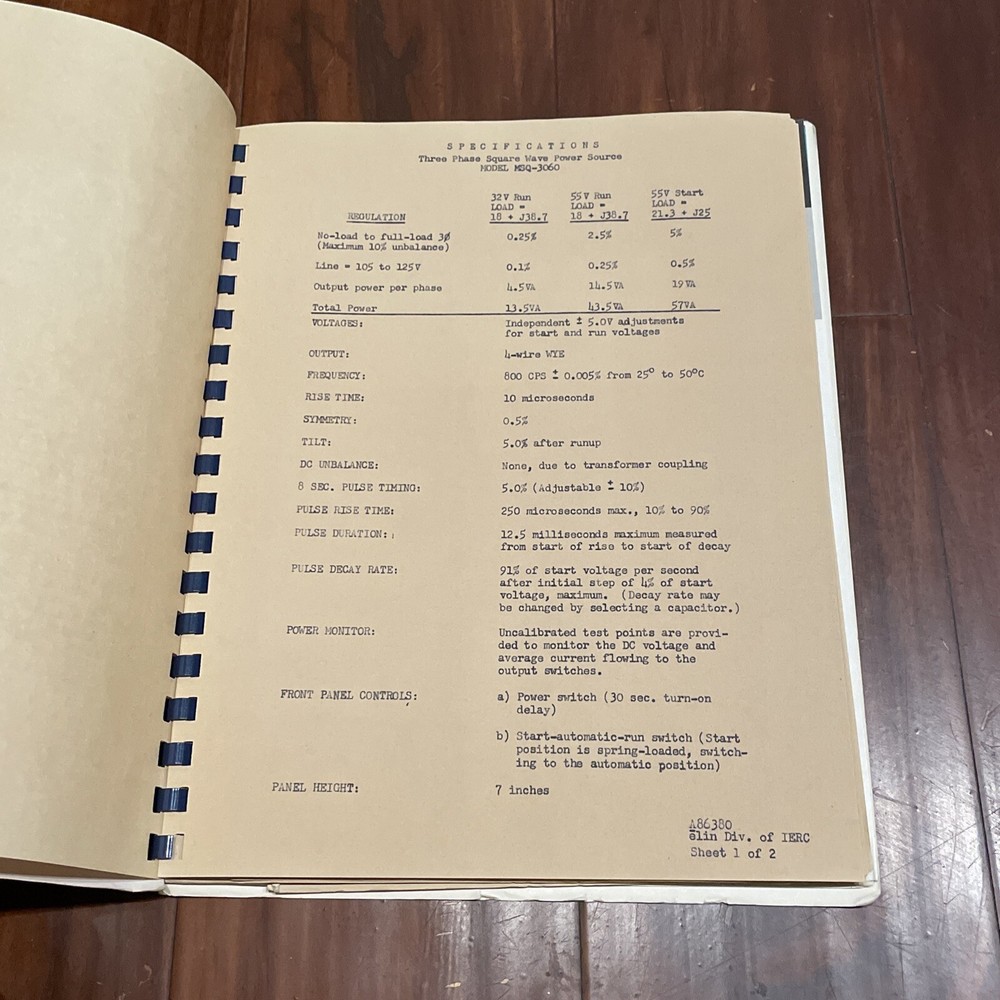 SPECIFICATIONS
Three Phase Square Wave Power Source
MODEL MSQ-3060
32V Run 55V Run 55V Start
LOAD = LOAD = LOAD =
REGULATION 18 + J38.7 18 + J38.7 21.3 + J25
No-load to full-load 3Ø 0.25% 2.5% 5%
(Maximum 10% unbalance)
Line = 105 to 125V 0.1% 0.25% 0.5%
Output power per phase 4.5VA 14.5VA 19VA
Total Power 13.5VA 43.5VA 57VA
VOLTAGES: Independent ± 5.0V adjustments
for start and run voltages
OUTPUT: 4-wire WYE
FREQUENCY: 800 CPS ± 0.005% from 25° to 50°C
RISE TIME: 10 microseconds
SYMMETRY: 0.5%
TILT: 5.0% after runup
DC UNBALANCE: None, due to transformer coupling
8 SEC. PULSE TIMING: 5.0% (Adjustable ± 10%)
PULSE RISE TIME: 250 microseconds max., 10% to 90%
PULSE DURATION: 12.5 milliseconds maximum measured
from start of rise to start of decay
PULSE DECAY RATE: 91% of start voltage per second
after initial step of 4% of start
voltage, maximum. (Decay rate may
be changed by selecting a capacitor.)
POWER MONITOR: Uncalibrated test points are provi-
ded to monitor the DC voltage and
average current flowing to the
output switches.
FRONT PANEL CONTROLS: a) Power switch (30 sec. turn-on
delay)
b) Start-automatic-run switch (Start
position is spring-loaded, switch-
ing to the automatic position)
PANEL HEIGHT: 7 inches
A86380
elin Div. of IERC
Sheet 1 of 2